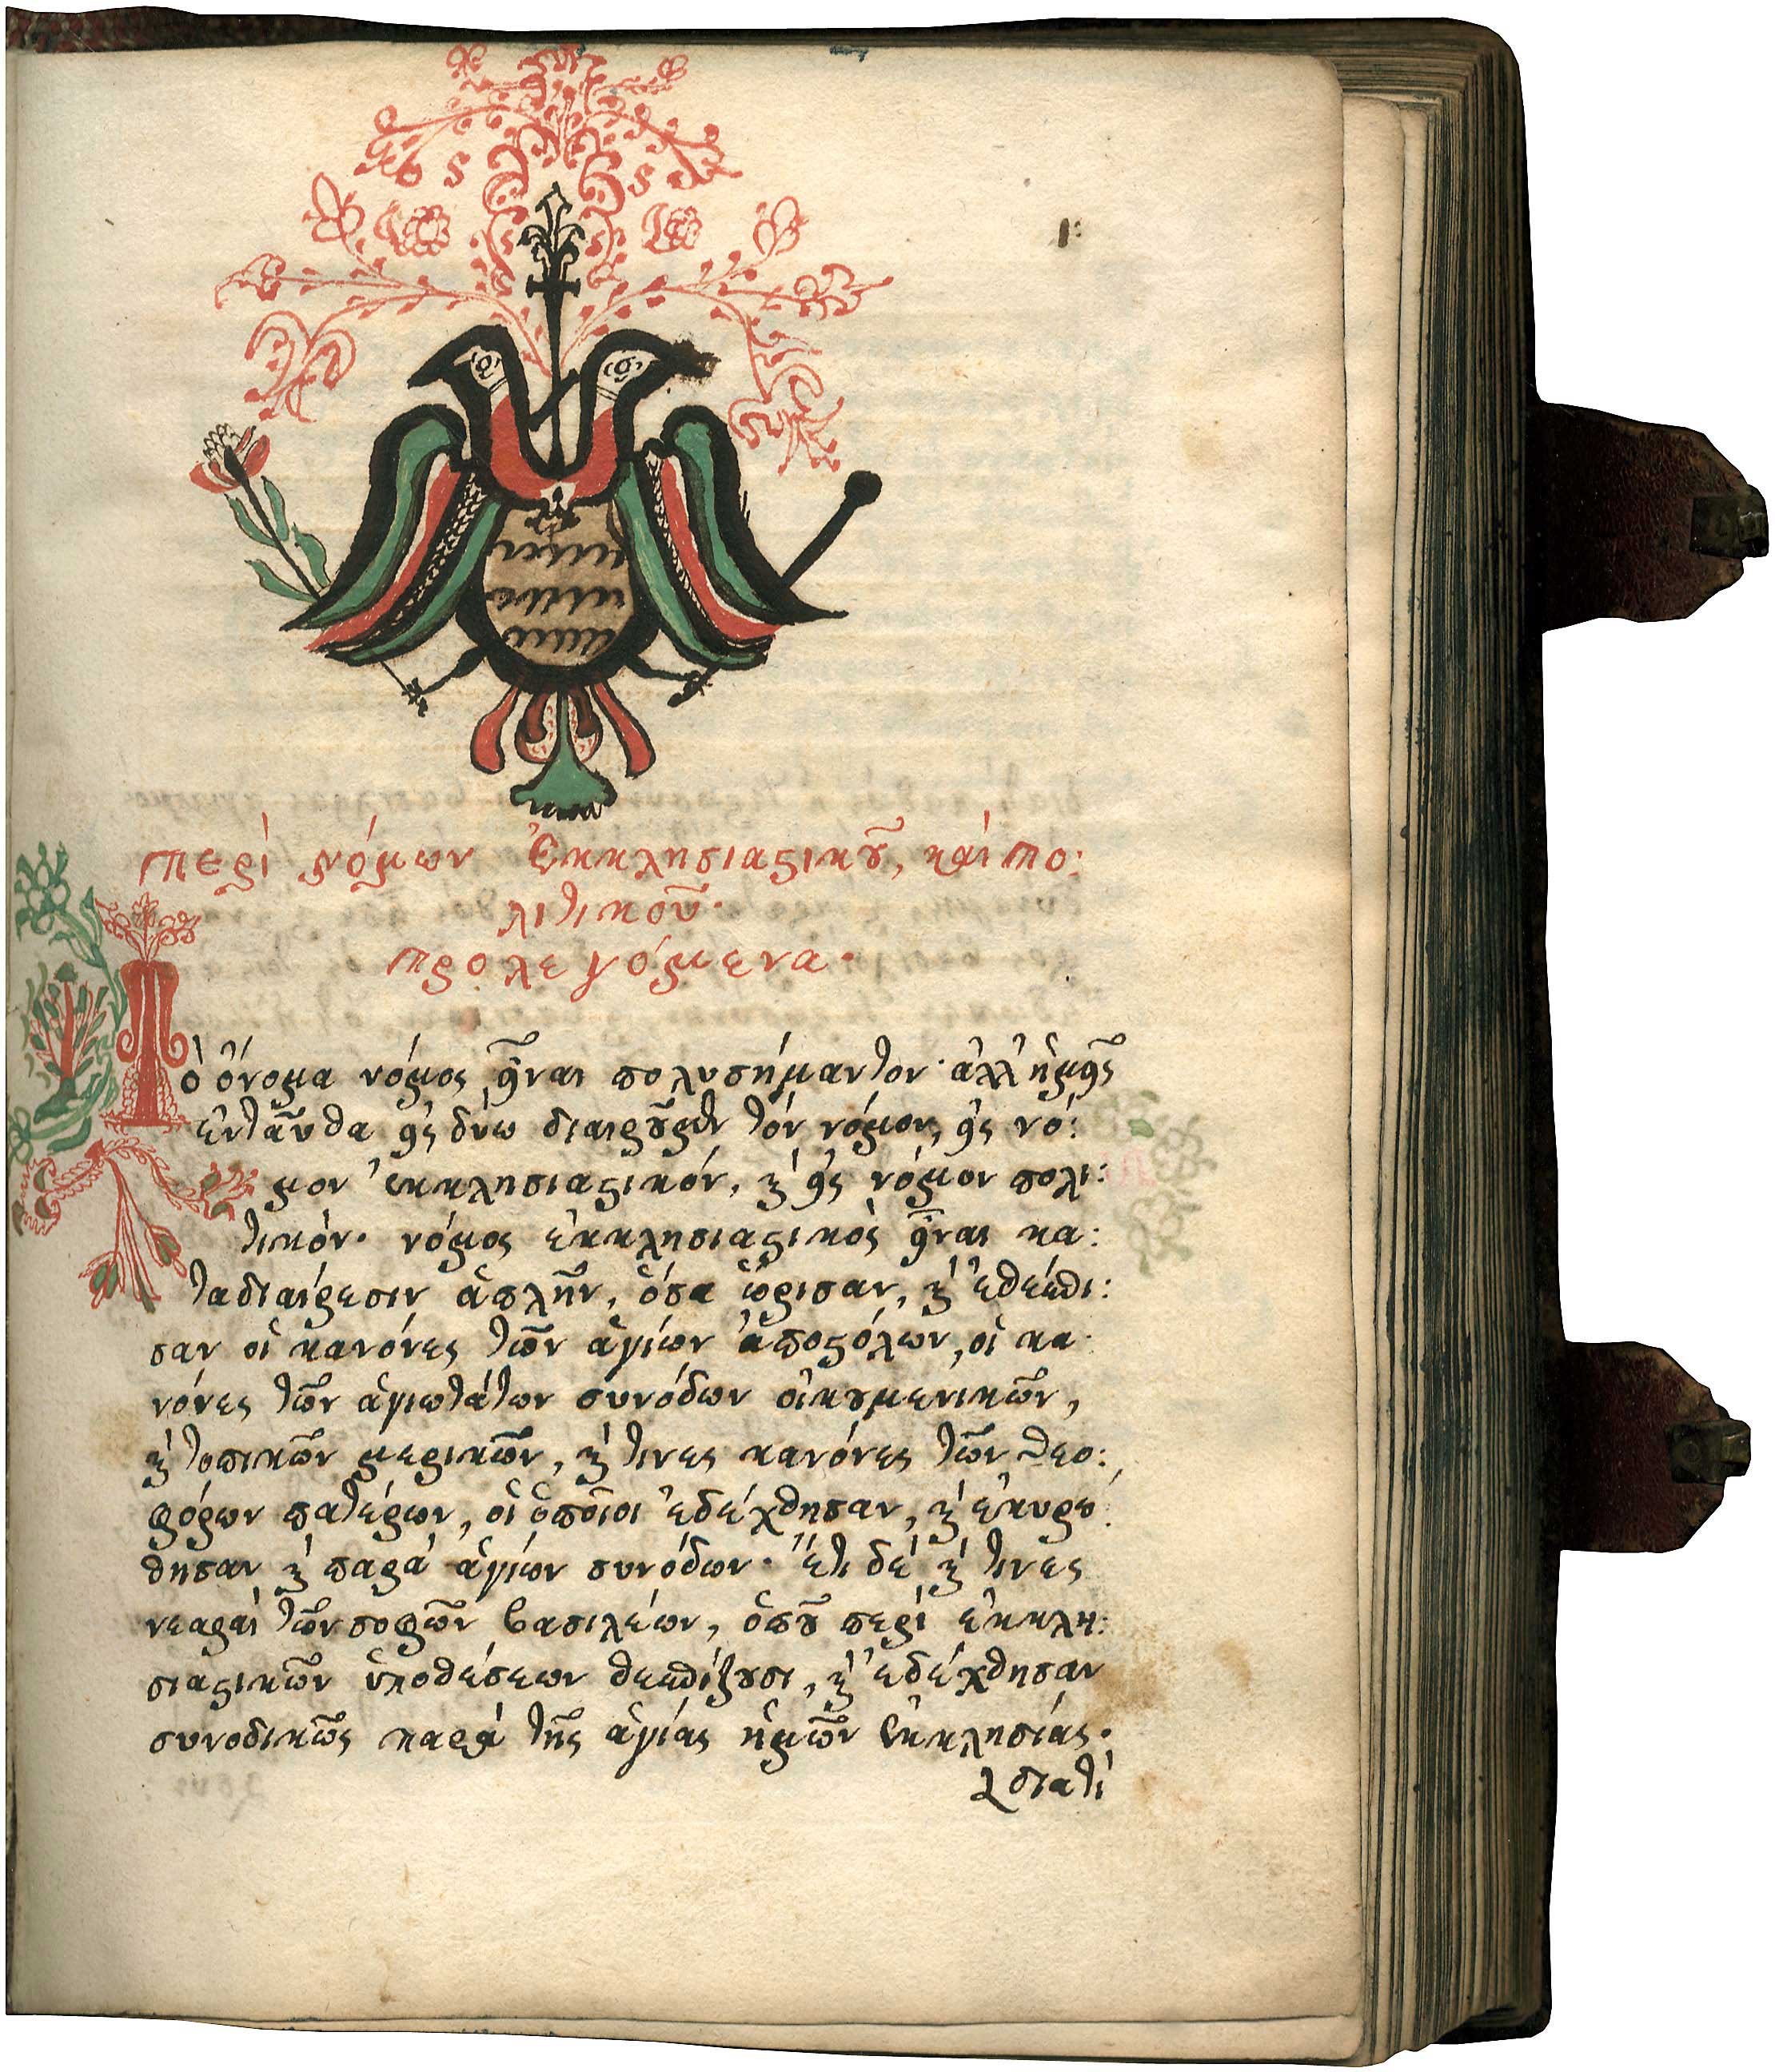 1:
Περὶ νόμων Ἐκκλησιαϛικȣ͂, καὶ πο:
λιτικοῦ·
Προλεγόμενα·
Τὸ ὄνομα νόμος εἶναι πολυσήμαντον· ἀλλ' ἡμεῖς
ἐνταῦθα εἰς δύω διαιρȣ͂μεν τὸν νόμον, εἰς νό:
μον ἐκκλησιαϛικόν, ϗ̀ εἰς νόμον πολι:
τικόν· νόμος ἐκκλησιαϛικὸς εἶναι κα:
τὰ διαίρεσιν ἁπλῆν, ὅσα ὥρισαν, ϗ̀ ἐθέσπι:
σαν οἱ κανόνες τῶν ἁγίων ἀποϛόλων, οἱ κα
νόνες τῶν ἁγιωτάτων συνόδων οἰκȣμενικῶν,
ϗ̀ τοπικῶν μερικῶν, ϗ̀ τινες κανόνες τῶν θεο:
φόρων πατέρων, οἱ ὁποῖοι ἐδέχθησαν, ϗ̀ ἐκυρώ
θησαν ϗ̀ παρὰ ἁγίων συνόδων· ἔτι δὲ ϗ̀ τινες
νεαραὶ τῶν σοφῶν βασιλέων, ὁπȣ͂ περὶ ἐκκλη:
σιαϛικῶν ὑποθέσεων θεσπίζȣσι, ϗ̀ ἐδέχθησαν
συνοδικῶς παρὰ τῆς ἁγίας ἡμῶν ἐκκλησίας·
διατὶ